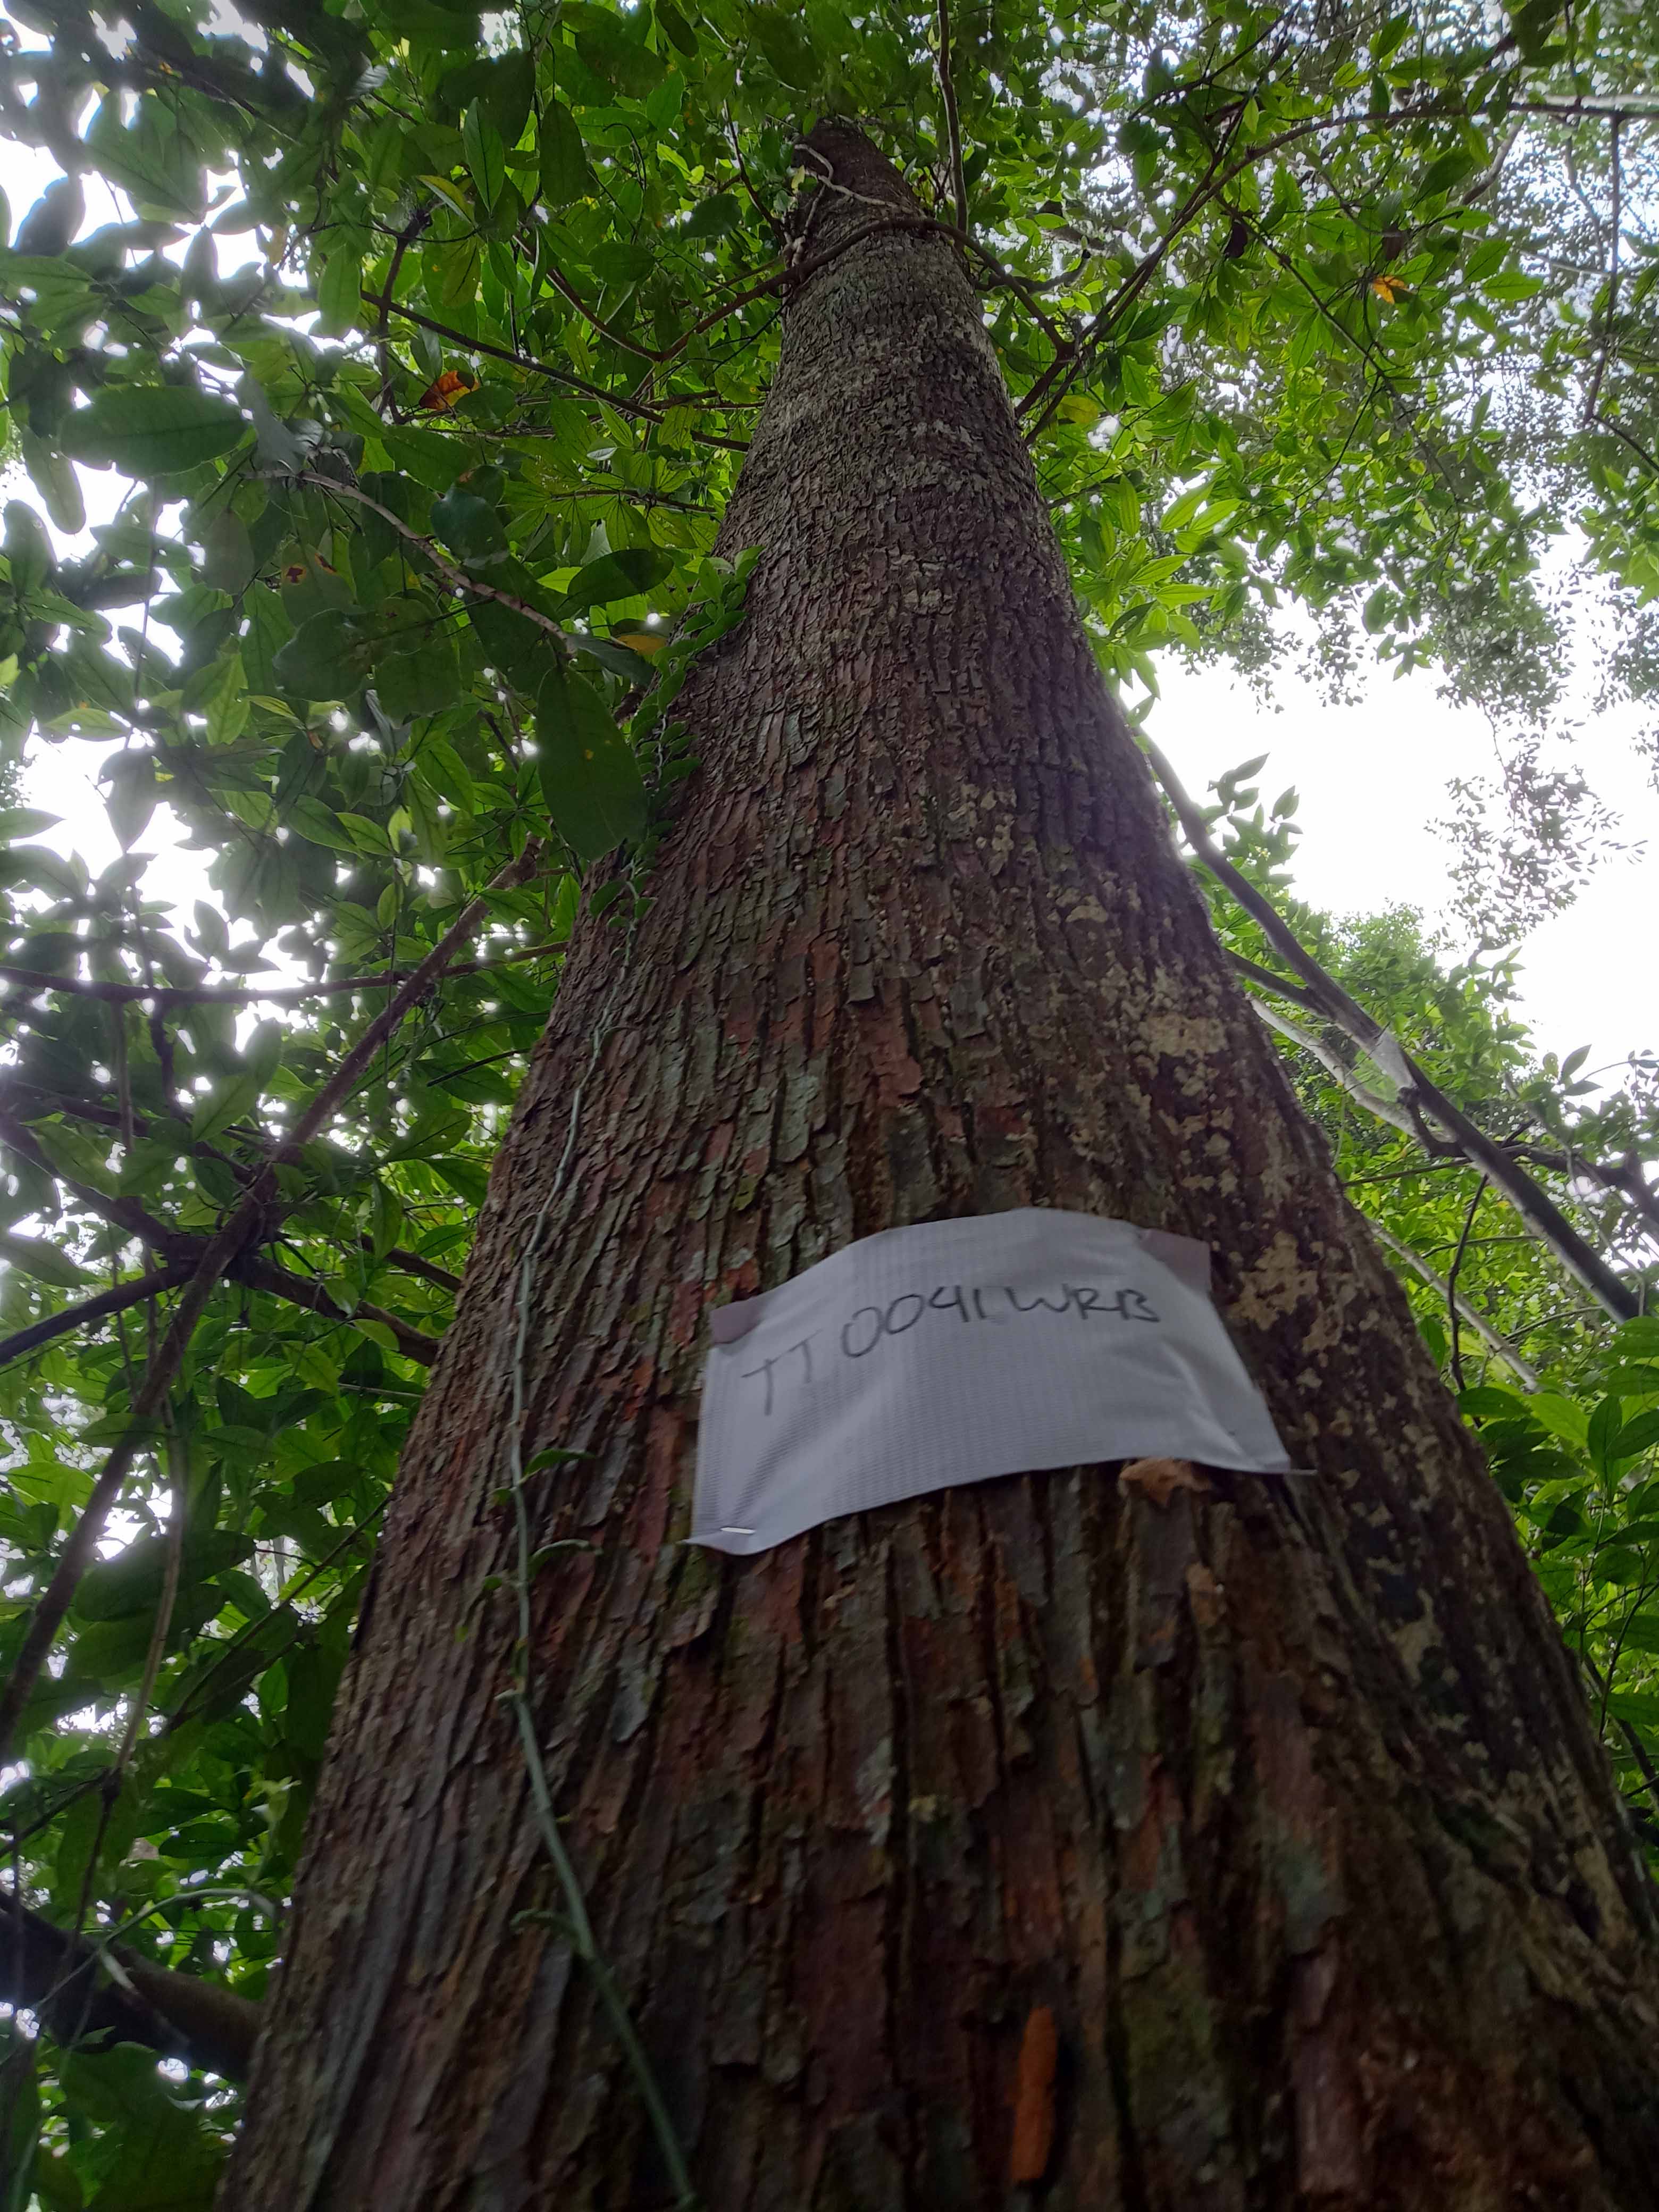 TT 0041 WRB